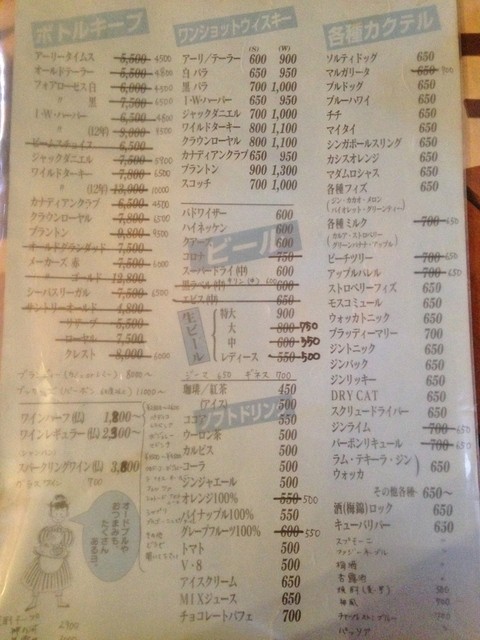 ボトルキープ
アーリータイムス 5,500 4500
オールドテーラー 5,500 4800
フォアローゼス白 6,000 4500
〃 黒 7,500 6500
I・W・ハーパー 6,500 4800
〃 (12年) 9,000 8500
ビームスチョイス 6,500
ジャックダニエル 7,500 5900
ワイルドターキー 7,800 6500
〃 (12年) 13,000 10000
カナディアンクラブ 6,500
クラウンローヤル 7,800
ブラントン 9,800
オールドグランダッド 7,500
メーカーズ 赤 7,500 6000
〃 ゴールド 12,800
シーバスリーガル 7,500 6500
サントリーオールド 4,800
リザーブ 5,500
ローヤル 7,500
クレスト 8,000 6000
ワインハーフ(仏)
ワインレギュラー(仏)
シャンパン
スパークリングワイン(仏)
グラスワイン 700
オードブルや
おつまみも
たくさん
あるヨ。
ワンショットウィスキー
(S) (W)
アーリ/テーラー 600 900
白バラ 650 950
黒バラ 700 1,000
I・W・ハーパー 650 950
ジャックダニエル 700 1,000
ワイルドターキー 800 1,100
クラウンローヤル 800 1,100
カナディアンクラブ 650 950
ブラントン 900 1,300
スコッチ 700 1,000
ビール
バドワイザー 600
ハイネッケン 600
クアーズ 600
コロナ 750
スーパードライ(中) 600
黒ラベル(中) キリン(中) 600
エビス(中) 650
生ビール
特大 900
大 800 750
中 600 550
レディース 550 500
ギネス 700
ソフトドリンク
珈琲/紅茶 450
(アイス) 500
ココア 550
ウーロン茶 500
カルピス 500
コーラ 500
ジンジャエール 500
オレンジ100% 550 500
パイナップル100% 550
グレープフルーツ100% 600 550
トマト 500
V・8 500
アイスクリーム 650
MIXジュース 650
チョコレートパフェ 700
各種カクテル
ソルティドッグ 650
マルガリータ 650 700
ブルドッグ 650
ブルーハワイ 650
チチ 650
マイタイ 650
シンガポールスリング 650
カシスオレンジ 650
マダムロシャス 650
各種フィズ 650
(ジン・カカオ・メロン
バイオレット・グリーンティー)
各種ミルク 700 650
(カルア・ストロベリー
グリーンバナナ・アップル)
ピーチツリー 700 650
アップルバレル 700 650
ストロベリーフィズ 650
モスコミュール 650
ウォッカトニック 650
ブラッディーマリー 700
ジントニック 650
ジンバック 650
ジンリッキー 650
DRY CAT 650
スクリュードライバー 650
ジンライム 700 650
バーボンリキュール 700 650
ラム・テキーラ・ジン
ウォッカ 650
その他各種 650〜
酒(梅錦)ロック 650
キューバリバー 650
スプモーニ 〃
ファジーネーブル 〃
梅酒 〃
杏露酒 〃
焼酎(麦・芋) 500